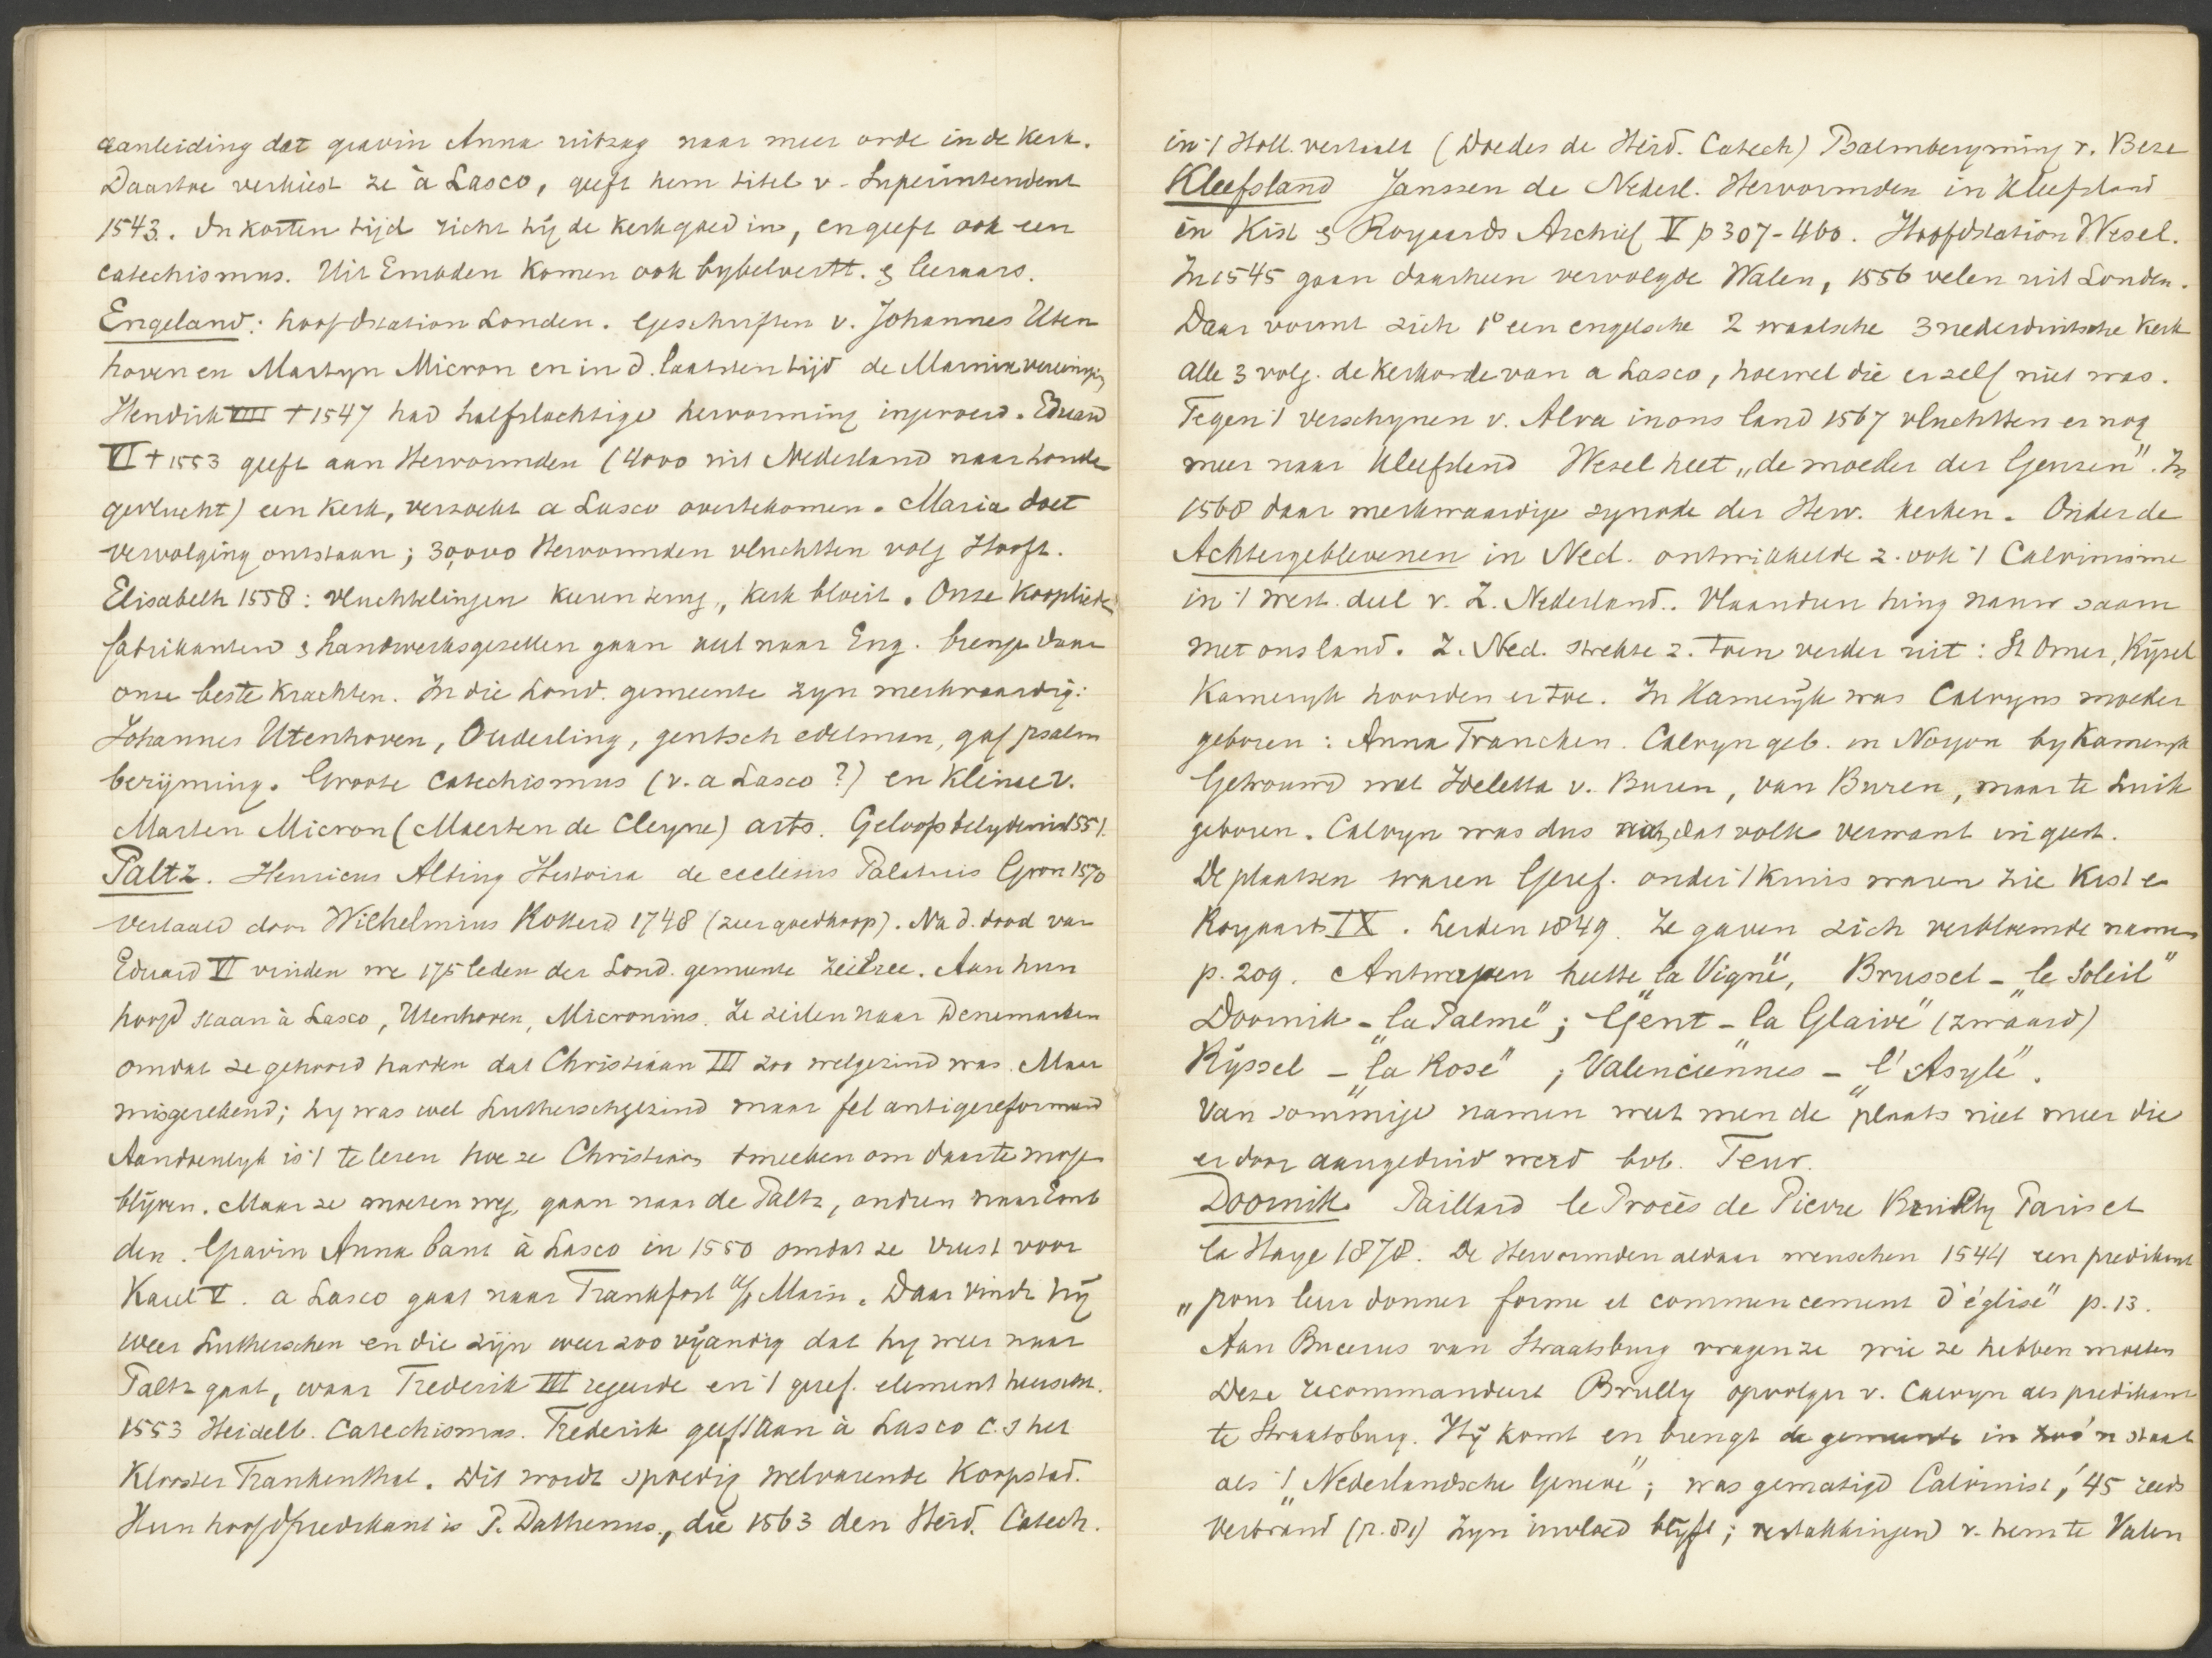 aanleiding dat gravin Anna uitzag naar meer orde in de Kerk.
Daartoe verkiest ze à Lasco, geeft hem titel v. Superintendent
1543. In korten tijd richt hij de kerk goed in, en geeft ook een
catechismus. Uit Emden komen ook bybelvertt. & leeraars.
Engeland: hoofdstation Londen. Geschriften v. Johannes Uten
hoven en Martyn Micron en in d. laatsten tijd de Marnixvereeniging
Hendrik VIII † 1547 had halfslachtige hervorming ingevoerd. Eduard
VI † 1553 geeft aan Hervormden (4000 uit Nederland naar Londen
gevlucht) een Kerk, verzocht a Lasco overtekomen. Maria doet
vervolging ontstaan; 30,000 Hervormden vluchtten volg Hooft.
Elisabeth 1558: vluchtelingen keeren terug, kerk bloeit. Onze Kooplieden
fabrikanten & handwerksgezellen gaan veel naar Eng. brengen daar
onze beste krachten. In die Lond. gemeente zyn merkwaardig:
Johannes Utenhoven, Ouderling, gentsch edelman, gaf psalm
berijming. Groote Catechismus (v. a Lasco ?) en Kleine v.
Marten Micron (Maerten de Cleyne) arts. Geloofsbelydenis 1551.
Paltz. Henricus Alting Historia de ecclesiis Palatinis Gron 1570
vertaald door Wilhelmius Kokerd 1748 (zeer goedkoop). Na d. dood van
Eduard VI vinden we 175 leden der Lond. gemeente zeilree. Aan hun
hoofd staan à Lasco, Utenhoven, Micronius. Ze zeilen naar Denemarken
omdat ze gehoord hadden dat Christiaan III zoo welgezind was. Maar
misgerekend; hy was wel Lutherschgezind maar fel antigereformeerd
Aandoenlyk is 't te lezen hoe ze Christiaan smeeken om daar te mogen
blijven. Maar ze moeten weg, gaan naar de Paltz, andren naar Emb
den. Gravin Anna bant à Lasco in 1550 omdat ze vreest voor
Karel V. a Lasco gaat naar Frankfort a/p Main. Daar vindt hij
weer Lutherschen en die zijn weer zoo vijandig dat hy weer naar
Paltz gaat, waar Frederik III regeerde en 't geref. element heerscht.
1553 Heidelb. Catechismus. Frederik geeft aan à Lasco c.s het
Klooster Frankenthal. Dit wordt spoedig welvarende Koopstad.
Hun hoofdpredikant is P. Dathenus, die 1563 den Heid. Catech.
in 't Holl. vertaalt (Doedes de Heid. Catech) Psalmberyming v. Beze
Kleefsland Janssen de Nederl. Hervormden in Kleefsland
in Kist & Royaards Archief V p 307-460. Hoofdstation Wesel.
In 1545 gaan daarheen vervolgde Walen, 1556 velen uit Londen.
Daar vormt zich 1° een engelsche 2 waalsche 3 nederduitsche Kerk
alle 3 volg. de Kerkorde van a Lasco, hoewel die er zelf niet was.
Tegen 't verschynen v. Alva in ons land 1567 vluchtten er nog
meer naar Kleefsland Wesel heet „de moeder der Geuzen". In
1568 daar merkwaardige synode der Herv. kerken. Onder de
Achtergeblevenen in Ned. ontwikkelde z. ook 't Calvinisme
in 't west. deel v. Z. Nederland. Vlaandren hing nauw saam
met ons land. Z. Ned. strekte z. toen verder uit: St Omer, Rijsel
Kameryk hoorden er toe. In Kamerijk was Calvyns moeder
geboren: Anna Francken. Calvyn geb. in Noyon by Kameryk
Getrouwd met Ideletta v. Buren, van Buren, maar te Luik
geboren. Calvyn was dus dat volk verwant in geest.
De plaatsen waren Geref. onder 't kruis waren zie Kist en
Royaards IX. Leiden 1849. Ze gaven zich verbloemde namen
p. 209. Antwerpen heette „la Vigne", Brussel - „le Soleil"
Doornik - „la Palme"; Gent - „la Glaive" (zwaard)
Ryssel - „la Rose"; Valenciennes - „l'Asyle".
Van sommige namen weet men de plaats niet meer die
er door aangeduid werd bvb. Feur.
Doornik Paillard le Procès de Pierre Brully Paris et
la Haye 1878. De Hervormden aldaar wenschen 1544 een predikant
„pour leur donner forme et commencement d'église" p. 13.
Aan Bucerus van Straatsburg vragen ze wie ze hebben moeten
Deze recommandeert Brully opvolger v. Calvyn als predikant
te Straatsburg. Hij komt en brengt de gemeente in zoo'n staat
als 't „Nederlandsche Geneve"; was gematigd Calvinist, '45 reeds
verbrand Zyn invloed blijft; vertakkingen v. hem te Valen